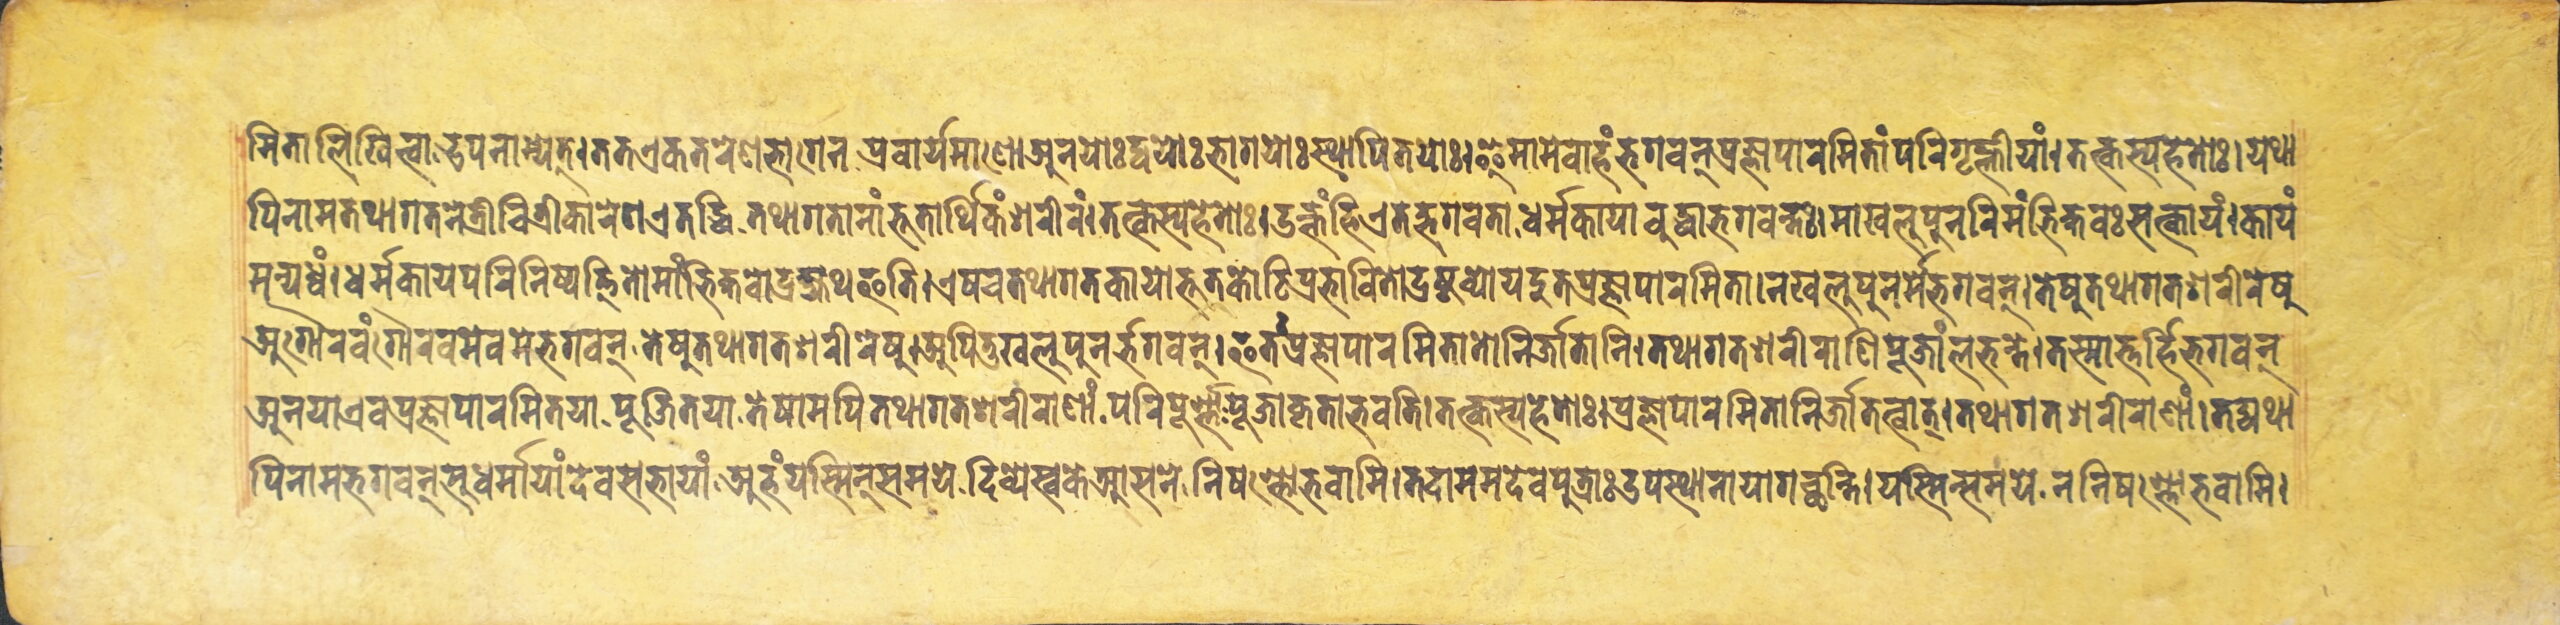 मिता लिखित्वा उपनाम्येत्। तत एकतरेण भागेन प्रवार्यमाणो अनयोः द्वयोः भागयोः स्थापितयोः। इमामेवाहं भगवन् प्रज्ञापारमितां परिगृह्णीयां। तत्कस्य हेतोः। यथा
पि नाम तथागतनेत्रीचित्रीकारेण एतद्धि तथागतानां भूतार्थिकं शरीरं। तत्कस्य हेतोः। उक्तं हि एतद्भगवता धर्मकाया बुद्धा भगवन्तः। मा खलु पुनरिमं भिक्षवः सत्कायं। कायं
मन्यध्वं। धर्मकायपरिनिष्पत्तितो मां भिक्षवो द्रक्ष्यथ इति। एष च तथागतकायो भूतकोटिप्रभावितो द्रष्टव्यो यदुत प्रज्ञापारमिता। न खलु पुनर्मे भगवन्। तेषु तथागतशरीरेषु
अगौरवं गौरवमेव मे भगवन् तेषु तथागतशरीरेषु। अपि तु खलु पुनर्भगवन्। इतः प्रज्ञापारमितातो निर्जातानि। तथागतशरीराणि पूजां लभन्ते। तस्मात्तर्हि भगवन्
अनया एव प्रज्ञापारमितया पूजितया तेषामपि तथागतशरीराणां परिपूर्ण्णा पूजा कृता भवति। तत्कस्य हेतोः। प्रज्ञापारमितानिर्जातत्वात्। तथागतशरीराणां। तद्यथा
पि नाम भगवन् सुधर्मायां देवसभायां अहं यस्मिन् समये दिव्ये स्वके आसने निषण्णो भवामि। तदा मम देवपुत्राः उपस्थानायागच्छन्ति। यस्मिन्समये न निषण्णो भवामि।